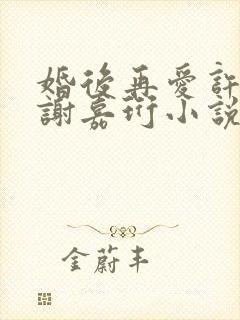 婚後再愛許
謝嘉珩小說
金蔚丰